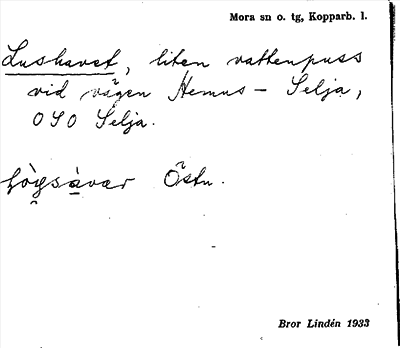 Mora sn o. tg, Kopparb. l.
Lushavet, liten vattenpuss
vid vägen Hemus – Selja,
OSO Selja.
Östn.
Bror Lindén 1933